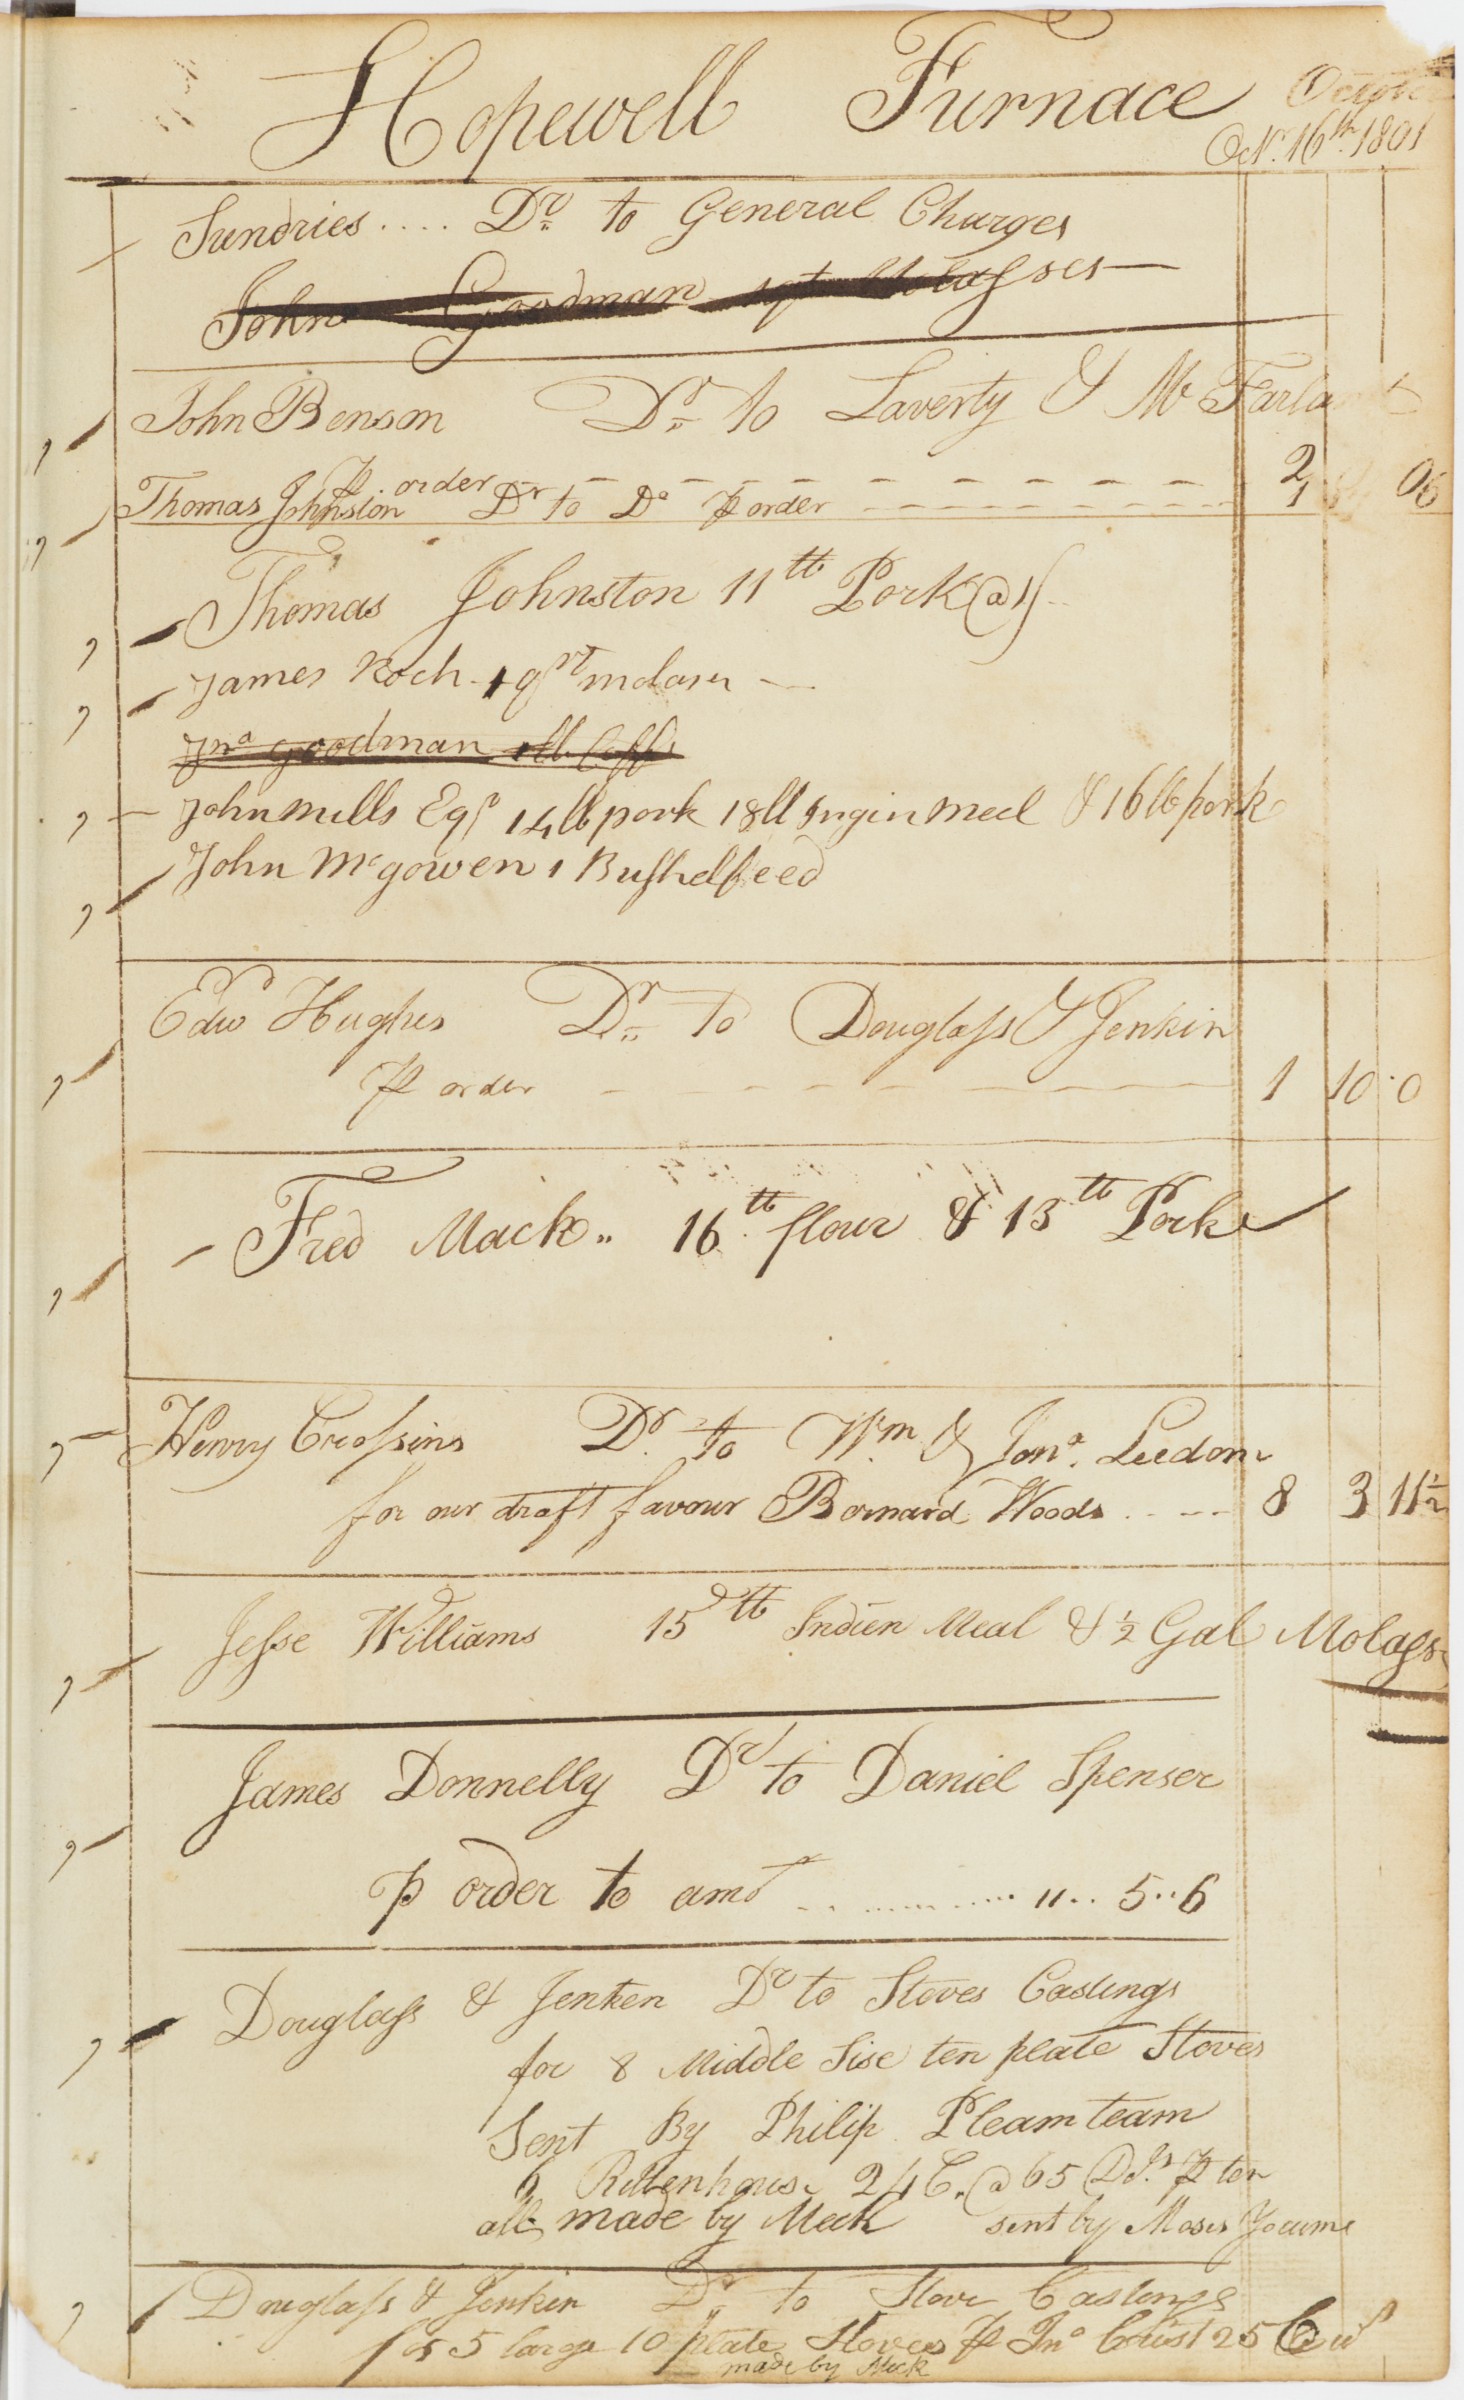 Hopewell Furnace October
Octr. 16th 1801
Sundries .... Dr to General Charges
John Goodman 1 qt Molasses
John Benson Dr to Laverty & McFarland
⅌ order 2 06
Thomas Johnston Dr to Do ⅌ order 1
Thomas Johnston 11 lb Pork @ 1/
James Koch 1 qrt molases
Jno Goodman 1 lb Coffe
John Mills Eqr 14 lb pork 18 lb ingin meel & 16 lb pork
John Mcgowen 1 Bushel feed
Edwd Hughes Dr to Douglass & Jenkin
⅌ order 1 10 0
Fred Mack 16 lb flour & 13 lb Pork
Henry Crossins Dr to Wm & Jona. Leedom
for our draft favour Bornard Woods 8 3 11½
Jesse Williams 15 lb Indien Meal & ½ Gal Molass
James Donnelly Dr to Daniel Spenser
⅌ order to amt 11 .. 5 .. 6
Douglass & Jenken Dr to Stoves Castings
for 8 Middle Sise ten plate Stoves
Sent By Philip Pleam team
6 Rittenhouse 24 C. @ 65 Dls ⅌ ton
all made by Meck sent by Moses Yocume
Douglass & Jenkin Dr to Stove Castings
for 5 large 10 plate Stoves ⅌ Jno Crist 25 Cwt
made by Meck